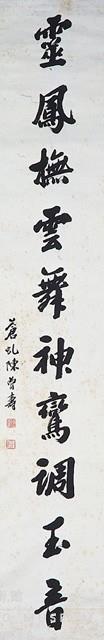 靈鳳撫雲舞神鸞調玉音
蒼虬陳曾壽